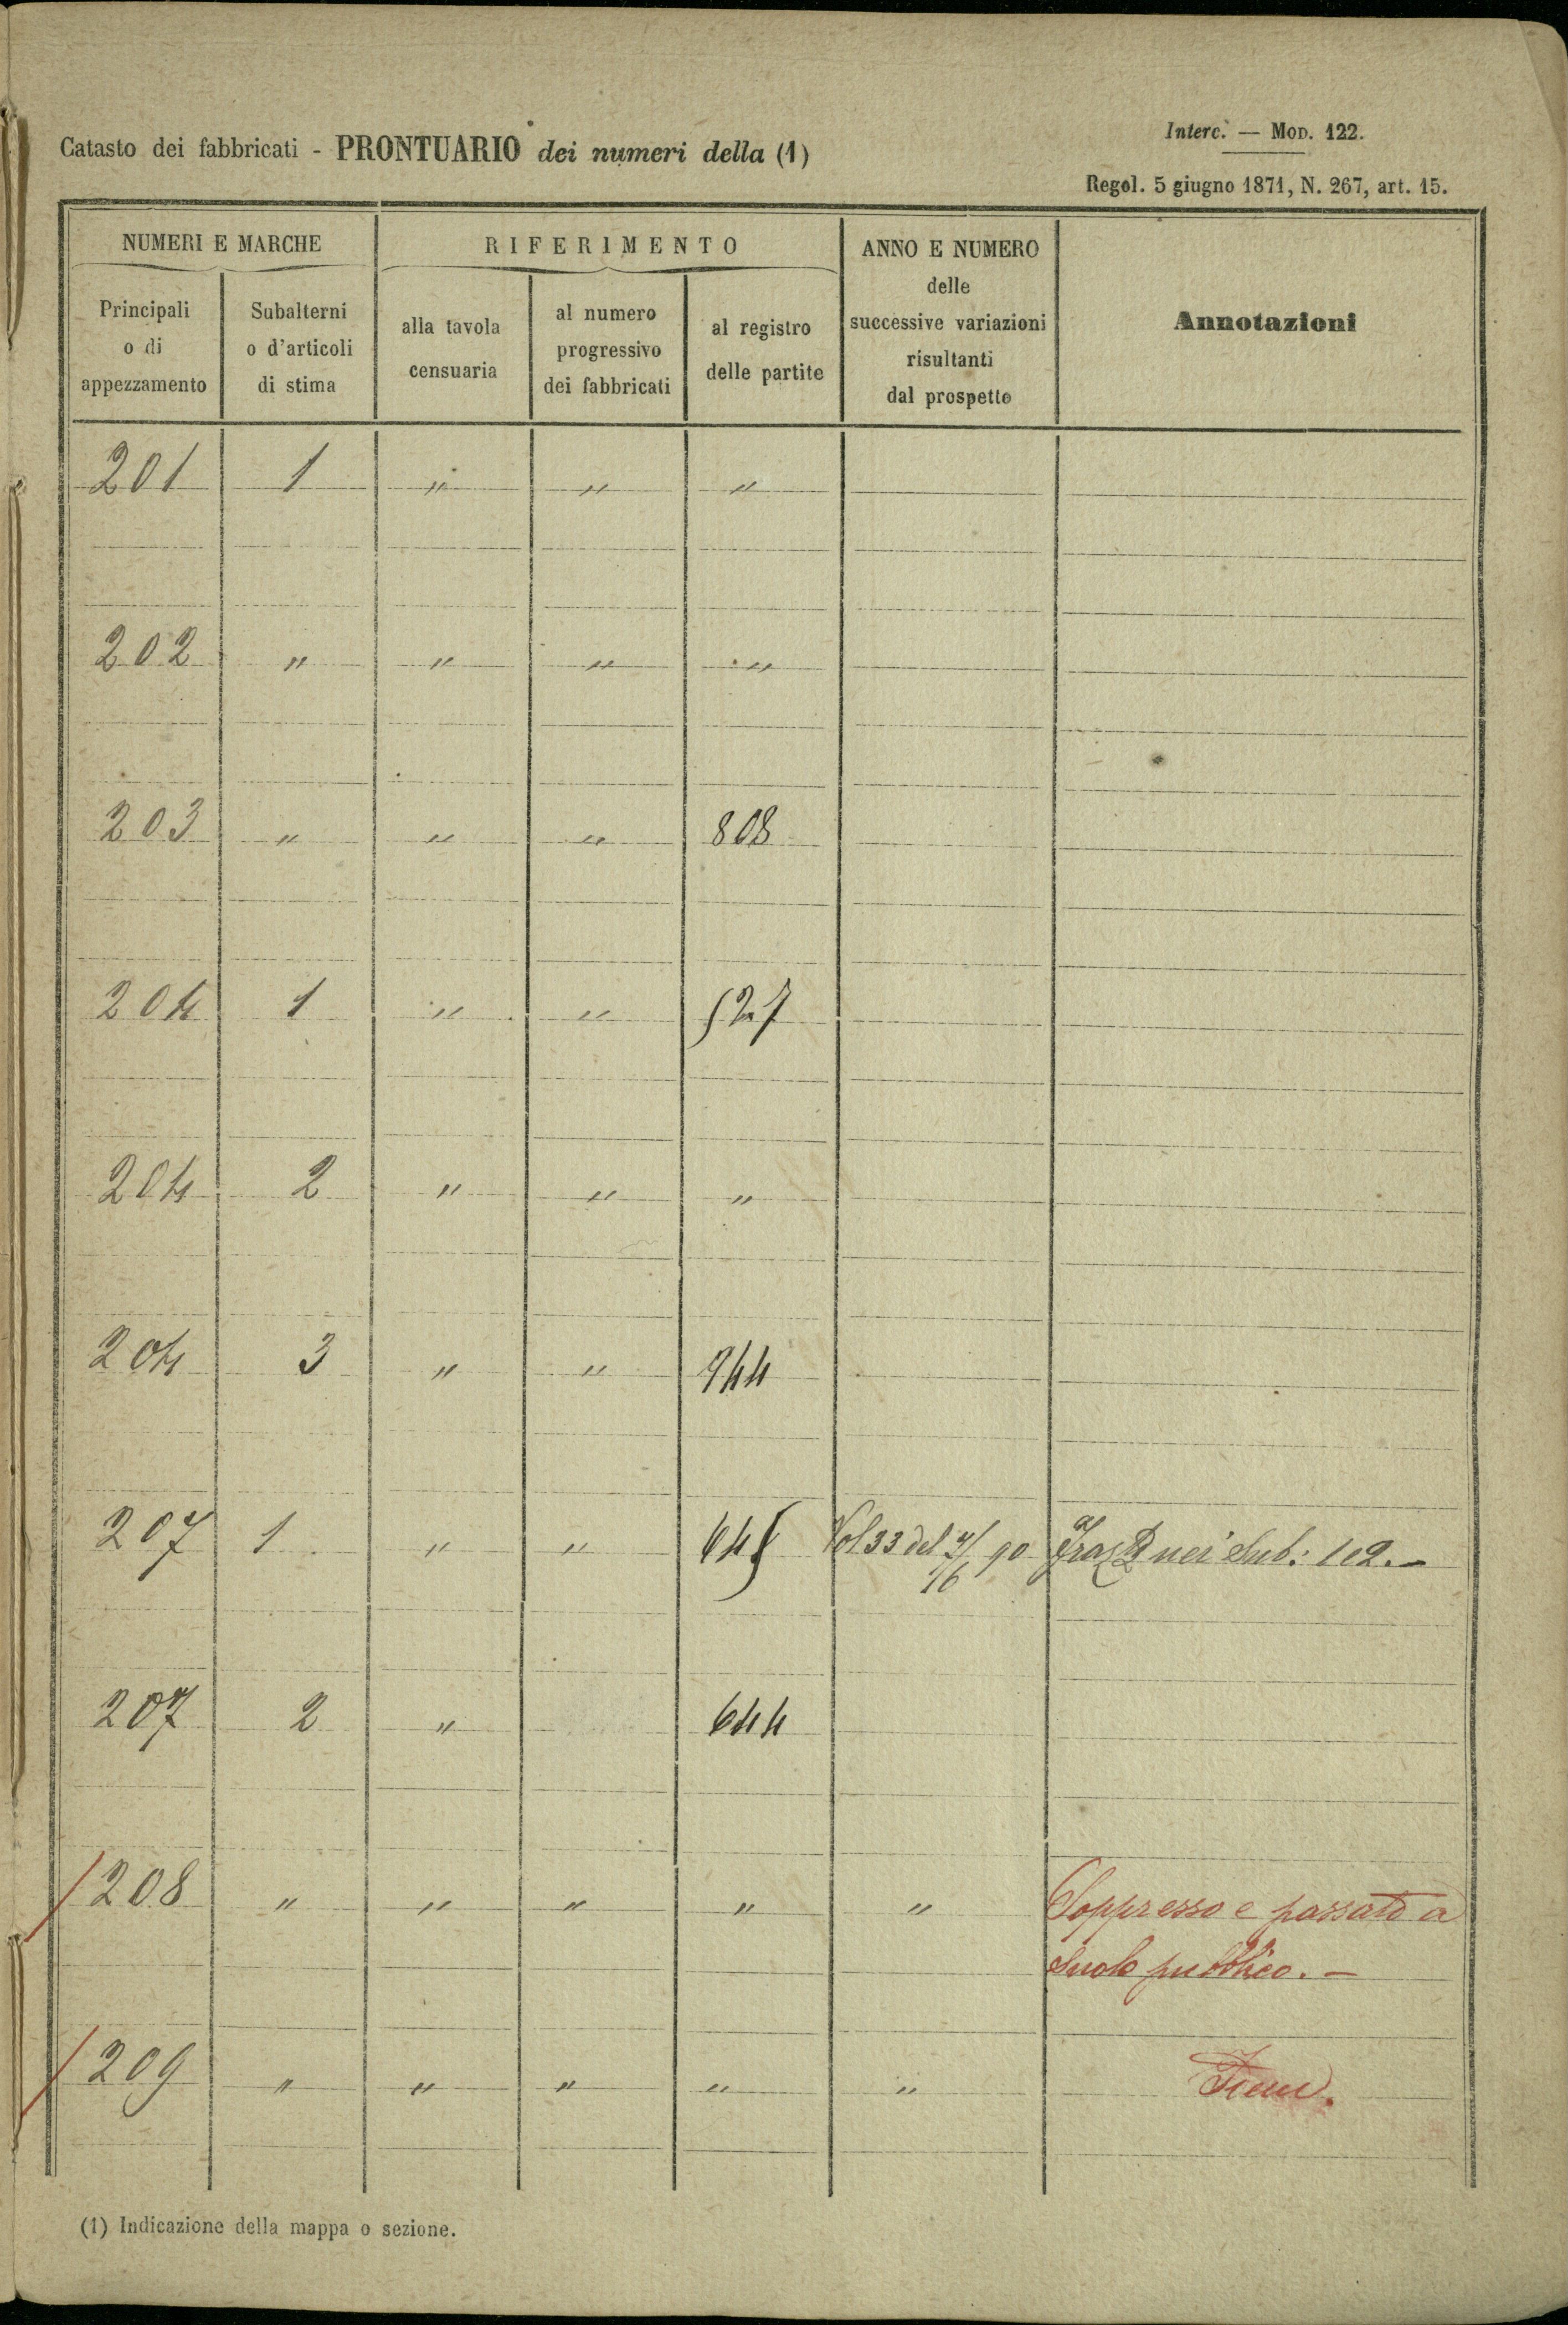 Interc. — Mod. 122.
Catasto dei fabbricati - PRONTUARIO dei numeri della (1)
Regol. 5 giugno 1871, N. 267, art. 15.
NUMERI E MARCHE
Principali o di appezzamento
Subalterni o d'articoli di stima
RIFERIMENTO
alla tavola censuaria
al numero progressivo dei fabbricati
al registro delle partite
ANNO E NUMERO delle successive variazioni risultanti dal prospetto
Annotazioni
201 1 " " "
202 " " " "
203 " " " 808
204 1 " " 527
204 2 " " "
204 3 " " 944
207 1 " " 645 Vol 33 del 90 nei Sub: 1 e 2. —
207 2 " 644
208 " " " " " Soppresso e passato a
suolo pubblico. —
209 " " " " "
(1) Indicazione della mappa o sezione.